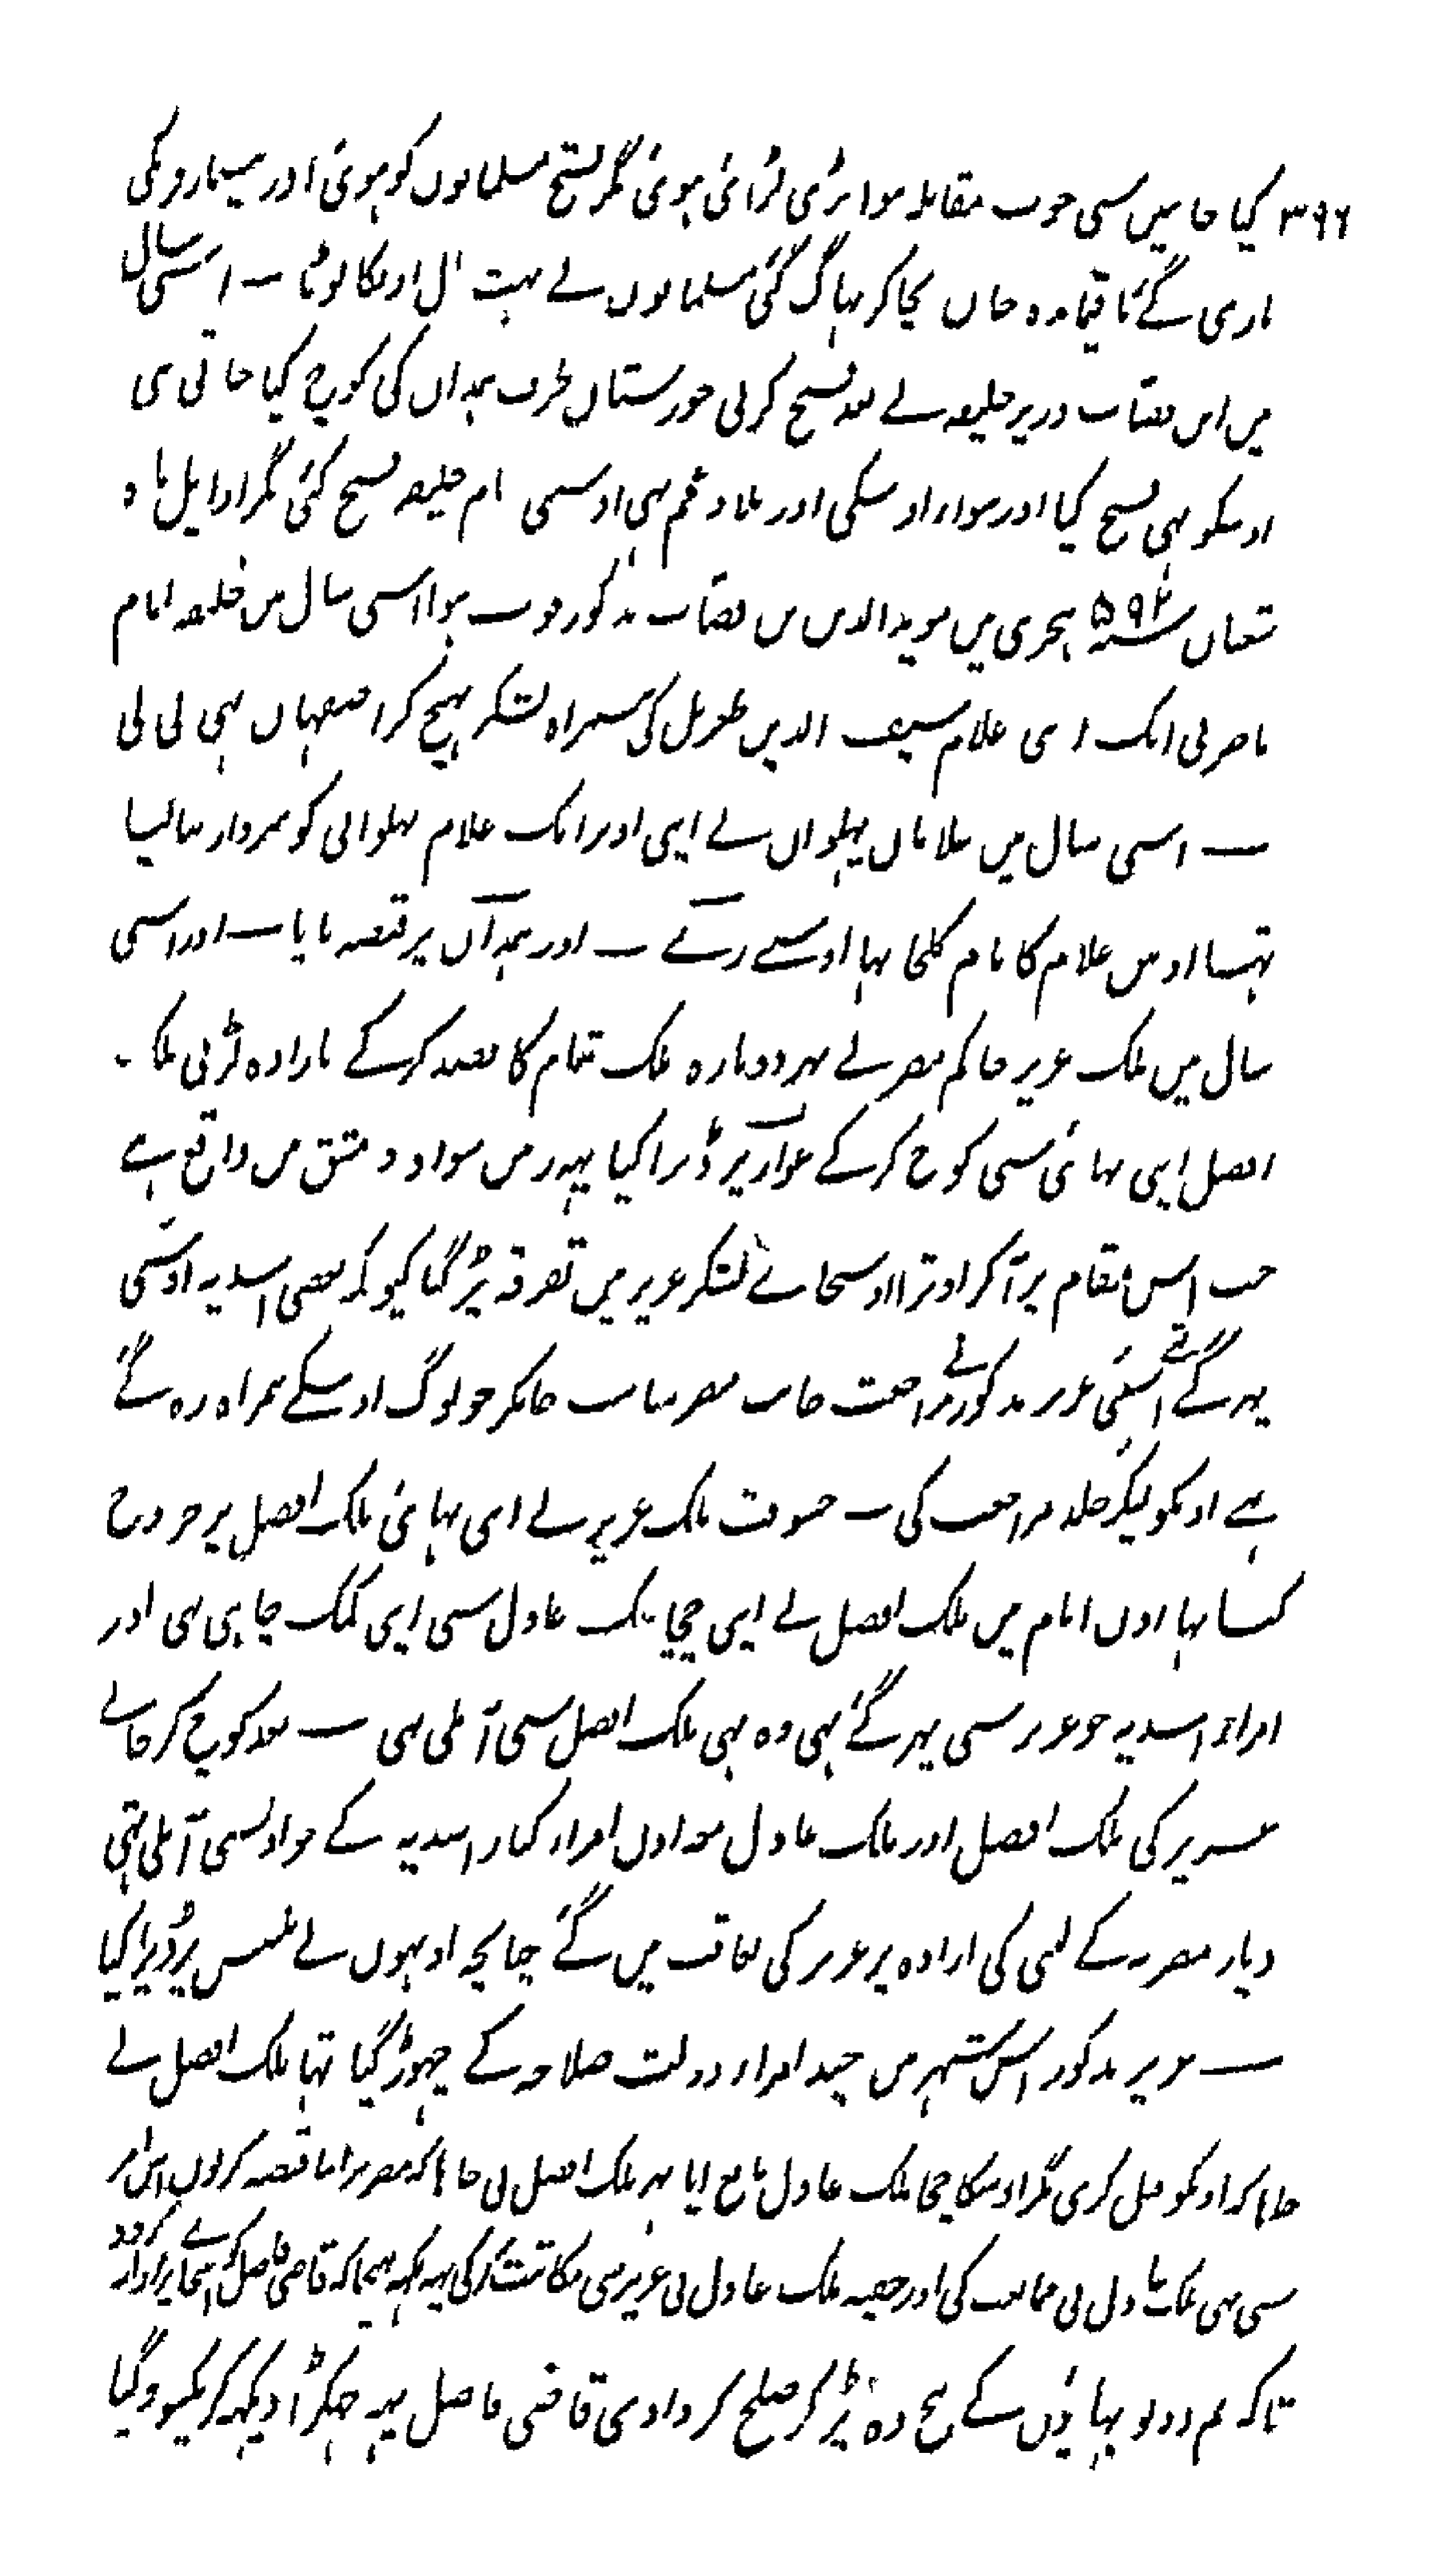 ۳۹۶ کیا جانبین سی خوب مقابلہ ہوا بڑی لڑائی ہوئی مگر فتح مسلمانوں کو ہوئی اور بیشمار فرنگی
ماری گئے باقیماندہ جان بچا کر بھاگ گئی مسلمانوں نے بہت مال اونکا لوٹا — اسی سال
میں ابن قصاب وزیر خلیفہ نے بعد فتح کرنی خوزستان طرف ہمدان کی کوچ کیا جاتی ہی
اوسکو بہی فتح کیا اور سواء اوسکی اور بلاد عجم بہی اوسنی بنام خلیفہ فتح کئی مگر اوایل ماہ
شعبان سنہ ۵۹۲ ہجری میں موید الدین بن قصاب مذکور فوت ہوا اسی سال میں خلیفہ امام
ناصر نی ایک اپنی غلام سیف الدین طغرل کی ہمراہ لشکر بہیج کر اصفہان بہی لی لی
— اسی سال میں غلامان پہلوان نے اپنی اوپر ایک غلام پہلوانی کو سردار بنا لیا
تہا اوس غلام کا نام کلجا تہا اوسنے رے — اور ہمدان پر قبضہ پایا — اور اسی
سال میں ملک عزیز حاکم مصر نے پہر دوبارہ ملک شام کا قصد کرکے بارادہ لڑنی ملک
افضل اپنی بہائی سی کوچ کرکے فوار پر ڈیرا کیا یہہ زمین سواد دمشق میں واقع ہے
جب اس مقام پر آکر اوترا اوسجائے لشکر عزیز میں تفرقہ پڑ گیا کیونکہ بعضی اسدیہ اوسّی
پہر گئے تھے اسلئی عزیز مذکور نے مراجعت جانب مصر مناسب جانکر جو لوگ اوسکے ہمراہ رہ گئے
تہے اونکو لیکر جلد مراجعت کی — جسوقت ملک عزیز نے اپنی بہائی ملک افضل پر خروج
کیا تہا اون ایام میں ملک افضل نے اپنی چچا ملک عادل سی اپنی کمک چاہی تہی اور
امراء اسدیہ جو عزیز سی پہر گئے تہی وہ بہی ملک افضل سی آ ملی تہی — بعد کوچ کر جانے
عزیز کی ملک افضل اور ملک عادل معہ اون امراء کبار اسدیہ کے جو اونسی آ ملی تہی
دیار مصریہ کے لینی کی ارادہ پر عزیز کی تعاقب میں گئے چنانچہ اونہوں نے بلبیس پر ڈیرا کیا
— عزیز مذکور اس شہر میں چند امراء دولت صلاحیہ کے چہوڑ گیا تہا ملک افضل نے
چاہا کہ اونکو قتل کری مگر اوسکا چچا ملک عادل مانع آیا پہر ملک افضل نی چاہا کہ مصر پر اپنا قبضہ کرلوں اس امر
سی بہی ملک عادل نی ممانعت کی اور خفیہ ملک عادل نی عزیز سی مکاتبت کرکی یہہ کہہ بہیجا کہ قاضی فاضل کو اسجا پر روانہ کردو
تاکہ ہم دونو بہائیوں کے بیچ وہ پڑ کر صلح کروا دی قاضی فاضل یہہ جہگڑا دیکہہ کر یکسو ہو گیا